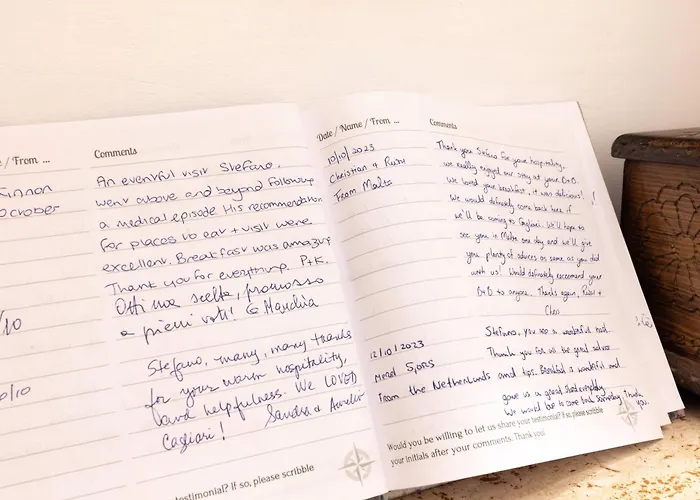 e / From ...
Comments
Kinnon
October
An eventful visit Stefano.
went above and beyond following
a medical episode His recommendation
for places to eat + visit were
excellent. Breakfast was amazing
Thank you for everything. P+K.
Ottima scelta, promosso
a pieni voti! G Maudia
/10
0/10
Stefano, many, many thanks
for your warm hospitality,
and helpfulness. We LOVED
Cagliari! Sandra & Aurelio
testimonial? If so, please scribble
Date / Name / From ...
Comments
10/10/2023
Christian + Ruth
From Malta
Thank you Stefano for your hospitality,
we really enjoyed our stay at your B+B.
We loved your breakfast, it was delicious!
We would definately come back here if
we'll be coming to Cagliari. We'll hope to
see you in Malta one day and we'll give
you plenty of advices as same as you did
with us! Would definately reccomend your
B+B to anyone. Thanks again,
Chris
12/10/2023
Merel
From the Netherlands
Stefano, you are a wonderful host.
Thank you for all the good advice
and tips. Breakfast is wonderful and
gave us a great start everyday.
We would love to come back someday. Thank
you.
Would you be willing to let us share your testimonial? If so, please scribble
your initials after your comments. Thank you!